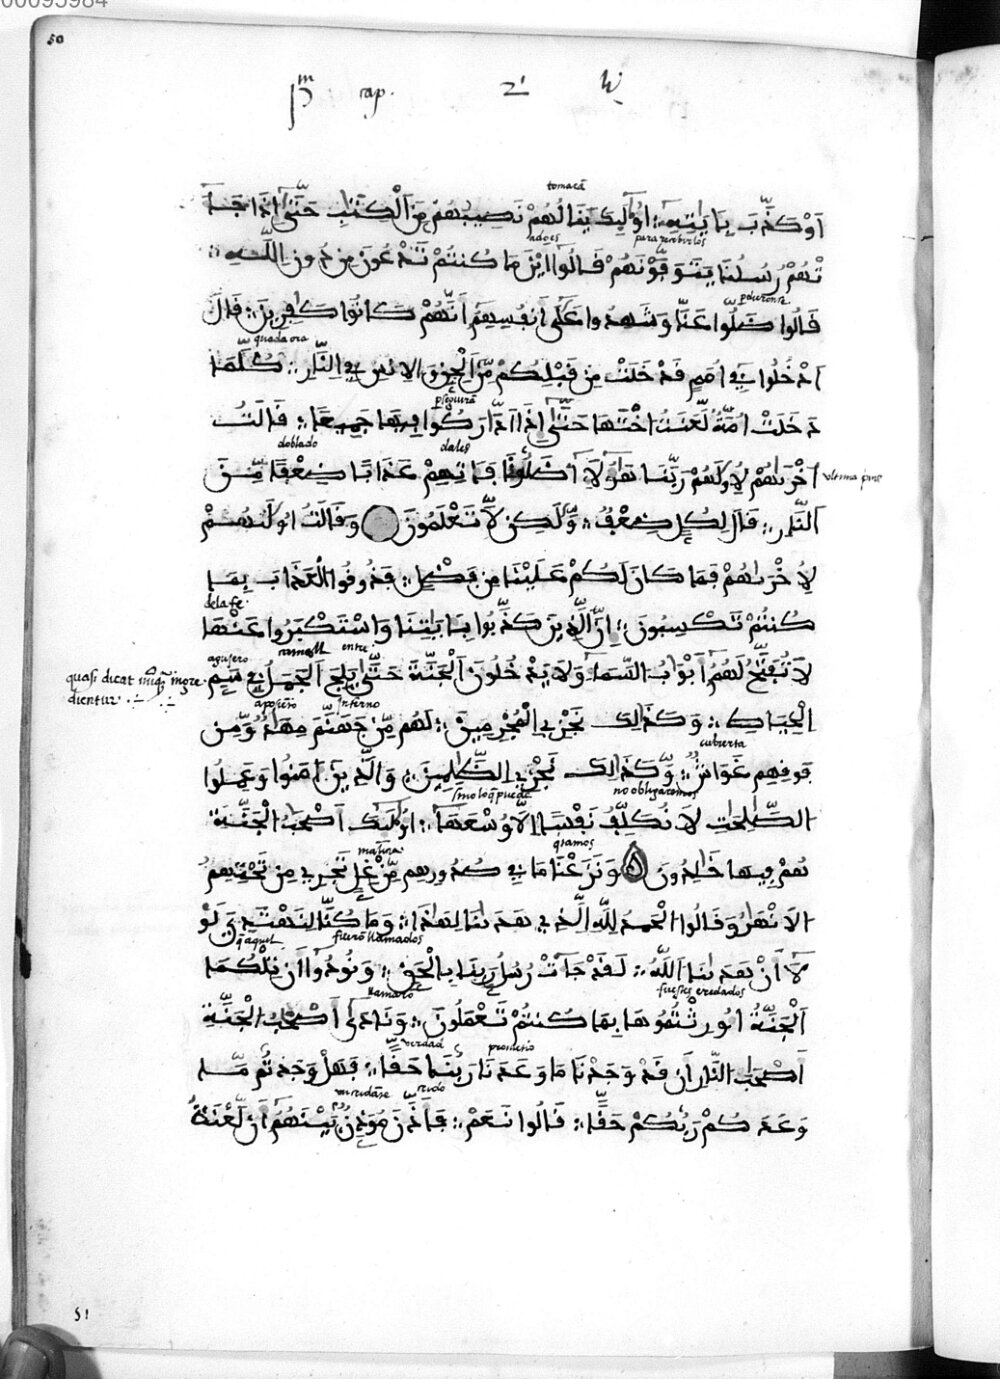 00095984
50
cap. 2
tomarā
اَوْ كَذَّبَ بِـَٔايَٰتِهِۦٓ ۞ اُوْلَٰٓئِكَ يَنَالُهُمْ نَصِيبُهُمْ مِّنَ اَلْكِتَٰبِ حَتَّىٰٓ إِذَا جَآ
adoes para recebirlos
تْهُمْ رُسُلُنَا يَتَوَفَّوْنَهُمْ قَالُوٓا أَيْنَ مَا كُنتُمْ تَدْعُونَ مِن دُونِ اِللَّهِ
قَالُوا ضَلُّوا عَنَّا وَشَهِدُوا عَلَىٰٓ أَنفُسِهِمْ أَنَّهُمْ كَانُوا كَٰفِرِينَ قَالَ
quada ora
اَدْخُلُوا فِےٓ أُمَمٍ قَدْ خَلَتْ مِن قَبْلِكُم مِّنَ اَلْجِنِّ وَالاِنسِ فِے اِلنَّارِ كُلَّمَا
دَخَلَتْ أُمَّةٌ لَّعَنَتُ اخْتَهَا حَتَّىٰٓ إِذَا اَدَّارَكُوا فِيهَا جَمِيعًا قَالَتُ
doblado dales
اخْرَىٰهُمْ لِأُولَىٰهُمْ رَبَّنَا هَٰٓؤُلَآءِ اَضَلُّونَا فَـَٔاتِهِمْ عَذَابًا ضِعْفًا مِّنَ
ultima
اَلنَّارِ قَالَ لِكُلٍّ ضِعْفٌ وَلَٰكِن لَّا تَعْلَمُونَ وَقَالَتُ اولَىٰهُمْ
لِأُخْرَىٰهُمْ فَمَا كَانَ لَكُمْ عَلَيْنَا مِن فَضْلٍ فَذُوقُوا الْعَذَابَ بِمَا
dela fe
كُنتُمْ تَكْسِبُونَ إِنَّ اَلَّذِينَ كَذَّبُوا بِـَٔايَٰتِنَا وَاسْتَكْبَرُوا عَنْهَا
agujero camell entre
لَا تُفَتَّحُ لَهُمُ أَبْوَٰبُ اُلسَّمَآءِ وَلَا يَدْخُلُونَ اَلْجَنَّةَ حَتَّىٰ يَلِجَ اَلْجَمَلُ فِے سَمِّ
quasi dicat nuq̃ ingre
dientur
aposēto Inferno
اِلْخِيَاطِ وَكَذَٰلِكَ نَجْزِے اِلْمُجْرِمِينَ لَهُم مِّن جَهَنَّمَ مِهَادٌ وَمِن
cubierta
فَوْقِهِمْ غَوَاشٍ وَكَذَٰلِكَ نَجْزِے اِلظَّٰلِمِينَ وَالَّذِينَ ءَامَنُوا وَعَمِلُوا
sino lo q̃ puede no obligaremos
اُلصَّٰلِحَٰتِ لَا نُكَلِّفُ نَفْسًا إِلَّا وُسْعَهَآ أُوْلَٰٓئِكَ أَصْحَٰبُ اُلْجَنَّةِ
qtamos
هُمْ فِيهَا خَٰلِدُونَ وَنَزَعْنَا مَا فِے صُدُورِهِم مِّنْ غِلٍّ تَجْرِے مِن تَحْتِهِمُ
الَانْهَٰرُ وَقَالُوا الْحَمْدُ لِلَّهِ اِلَّذِے هَدَىٰنَا لِهَٰذَا وَمَا كُنَّا لِنَهْتَدِيَ لَوْ
q̃ aquel fuerō llamados
لَآ أَنْ هَدَىٰنَا اَللَّهُ لَقَدْ جَآءَتْ رُسُلُ رَبِّنَا بِالْحَقِّ وَنُودُوٓا أَن تِلْكُمُ
llamarō fuestes eredados
اُلْجَنَّةُ أُورِثْتُمُوهَا بِمَا كُنتُمْ تَعْمَلُونَ وَنَادَىٰٓ أَصْحَٰبُ اُلْجَنَّةِ
verdad prometio
أَصْحَٰبَ اَلنَّارِ أَن قَدْ وَجَدْنَا مَا وَعَدَنَا رَبُّنَا حَقًّا فَهَلْ وَجَدتُّم مَّا
وَعَدَكُمْ رَبُّكُمْ حَقًّا قَالُوا نَعَمْ فَأَذَّنَ مُؤَذِّنٌ بَيْنَهُمُ أَن لَّعْنَةُ
51